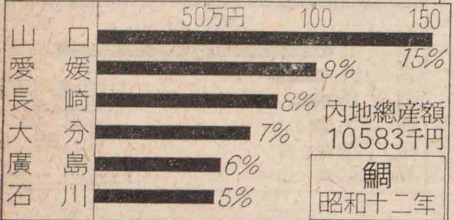 50万円 100 150
山口 15%
愛媛 9%
長崎 8%
大分 7%
廣島 6%
石川 5%
內地總産額
10583千円
鯛
昭和十二年